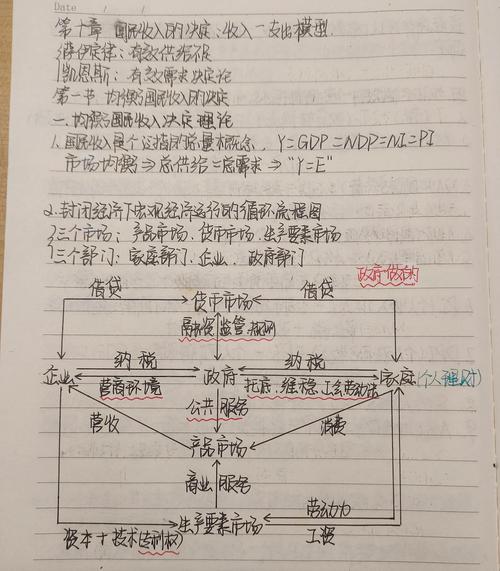 Date
第十章 国民收入的决定:收入—支出模型.
萨伊定律:有效供给不足
凯恩斯:有效需求决定论
第一节 均衡国民收入的决定
一、均衡国民收入决定理论
1.国民收入是个泛指的总量本概念, Y=GDP=NDP=NI=PI
市场均衡⇒总供给=总需求⇒"Y=E"
2.封闭经济下宏观经济运行的循环流程图
三个市场:产品市场、货币市场、生产要素市场
三个部门:家庭部门、企业、政府部门
政府做的
借贷 货币市场 借贷
融投资 监管、规则
纳税 纳税
企业 政府 家庭(个人理财)
营商环境 托底、维稳、工会劳动法
公共 服务
营收 消费
产品市场
商业 服务
劳动力
生产要素市场
资本+技术(专利权) 工资